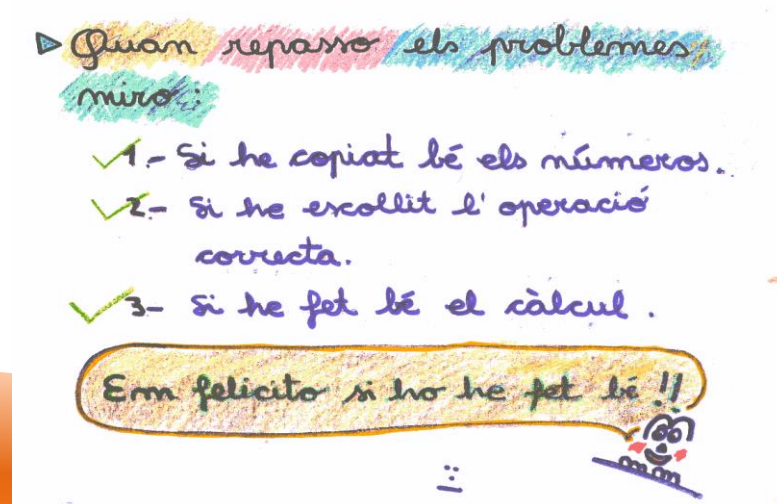 Quan repasso els problemes
miro:
1.- Si he copiat bé els números.
2.- Si he escollit l'operació
correcta.
3- Si he fet bé el càlcul.
Em felicito si ho he fet bé!!